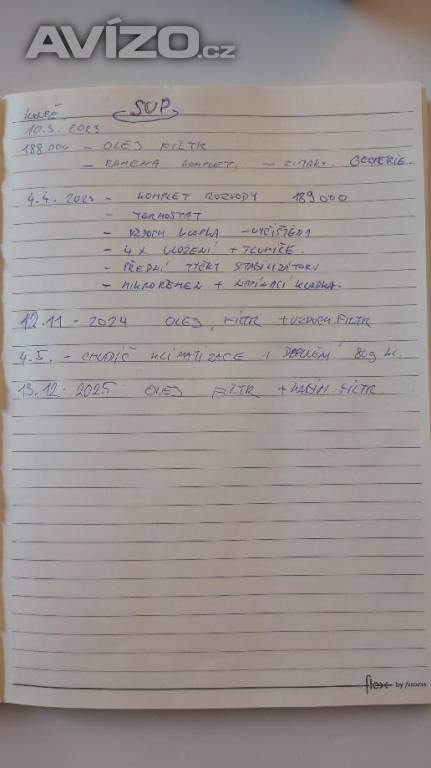 AVÍZO.cz
SUP
10.3. 2023
188 000 - OLEJ FILTR
- RAMENA KOMPLET. - ZIMÁKY. GEOMERIE.
4.4. 2023 - KOMPLET ROZVODY 189 000
- TERMOSTAT
- VZDUCH KLAPKA - VYČIŠTĚNA
- 4X ULOŽENÍ + TLUMIČE.
- PŘEDNÍ TYČKY STABILIZÁTORU
- MIKROŘEMEN + NAPÍNACÍ KLADKA.
12.11 - 2024 OLEJ, FILTR + VZDUCH FILTR
4.5. - CHLADIČ KLIMATIZACE + DOPLNĚNÍ
13.12. 2025 OLEJ FILTR + KABIN FILTR
flexi by